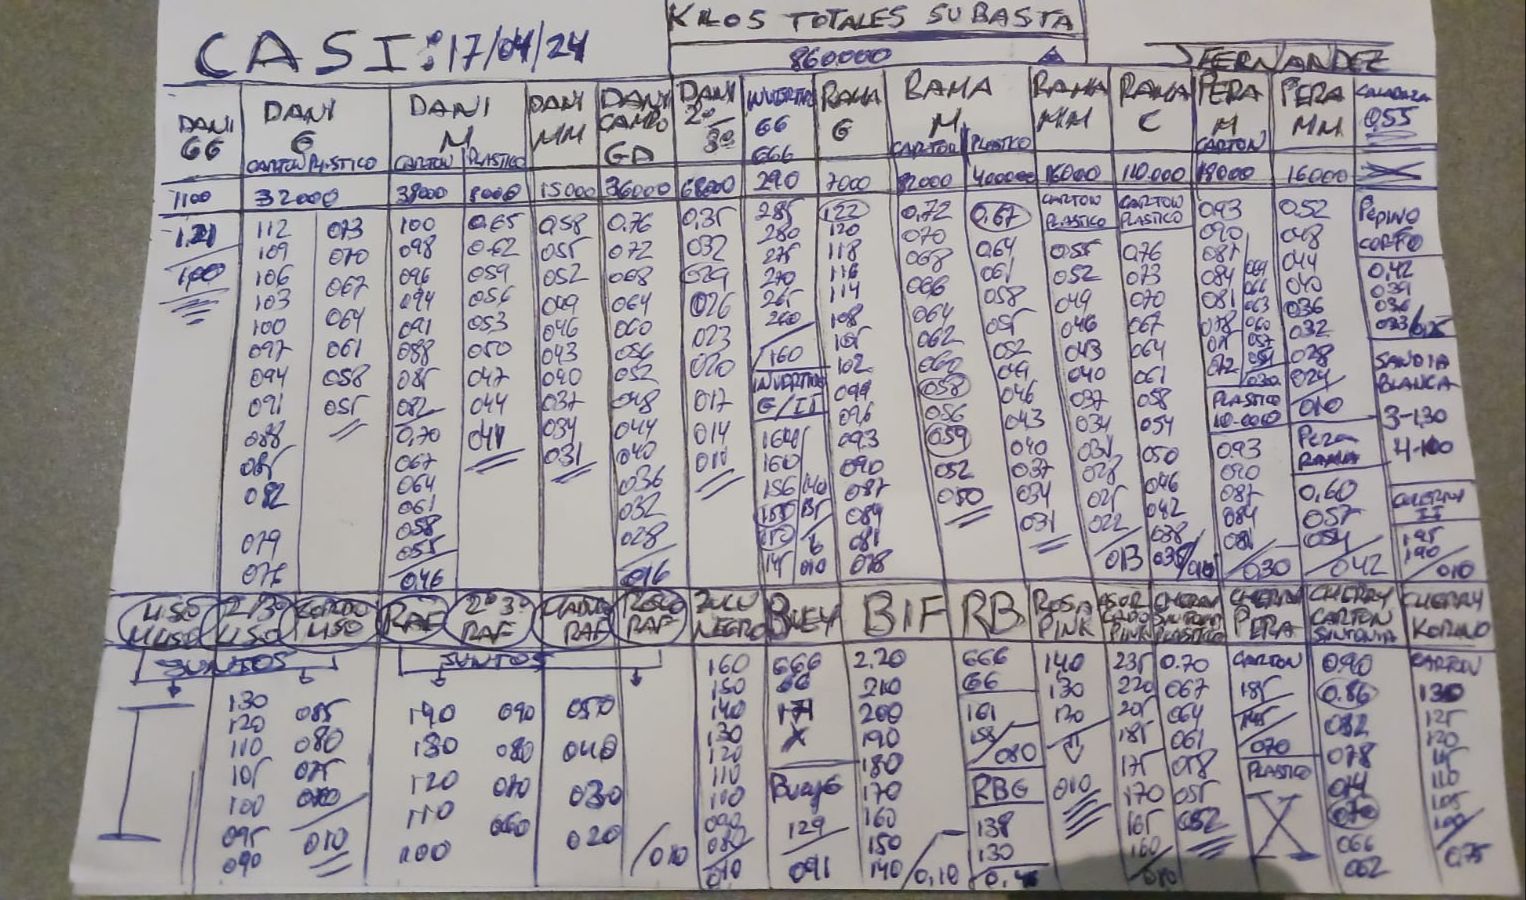 KILOS TOTALES SUBASTA
CASI: 17/04/24
860.000
JFERNANDEZ
DANI GG
DANI G CARTON PLASTICO
DANI M CARTON PLASTICO
DANI MM
DANI CAMPO GD
DANI 2º 3º
GG GGG
RAMA G
RAMA M CARTON PLASTICO
RAMA MM
RAMA C
PERA M CARTON
PERA MM
0,55
1100
32000
38000
8000
15000
36000
68000
290
7000
16000
110.000
18000
16000
1.21
100
112 073
109 070
106 067
103 064
100 061
097 058
094 055
091
088
085
082
079
076
100
098
096
094
091
088
085
082
0,70
067
064
061
058
055
0,46
0,65
0,62
059
056
053
050
047
044
041
0,58
055
052
049
046
043
040
037
034
031
0,76
072
068
064
060
056
052
048
044
040
036
032
028
016
0,35
032
029
026
023
020
017
014
010
285
280
275
270
265
260
160
G/II
164
160
156 140
150 135
145 010
122
120
118
116
114
108
105
102
099
096
093
090
087
084
081
078
0,72
070
068
066
064
062
060
058
056
059
052
050
0,67
0,64
061
058
055
052
049
046
043
040
037
034
031
CARTON PLASTICO
0,55
052
049
046
043
040
037
034
031
028
025
022
013
CARTON PLASTICO
0,76
073
070
067
064
061
058
054
050
046
042
038
035
093
090
087
084
081
078
075
072
030
PLASTICO 10.000
093
090
087
084
081
0,30
0,52
048
044
040
036
032
028
024
010
PERA RAMA
0,60
057
054
0,42
PEPINO CORTO
0,42
039
036
033
SANDIA BLANCA
3-1,30
4-100
CHERRY II
195
190
010
LISO
2/3º LISO
LISO
RAF
2º 3º RAF
RAF
RAF
NEGRO
BUEY
BIF
RB
ROSA PINK
PINK
CHERRY PLASTICO
CHERRY PERA
CHERRY CARTON SINTONIA
CHERRY KORINO
JUNTOS
JUNTOS
130 085
120 080
110 075
105
100
095 010
090
140 090 050
130 080 040
120 070 030
110 060 020
100
010
160
150
140
130
120
110
100
090
080
010
GGG
GG
X
BUEY G
129
091
2.20
210
200
190
180
170
160
150
140
0,10
GGG
GG
161
158
080
RBG
138
130
140
130
120
010
235
220
205
185
175
170
165
160
0.70
067
064
061
058
055
052
CARTON
185
145
070
PLASTICO
X
090
0.86
082
078
074
070
066
062
CARTON
130
125
120
115
110
105
100
0,75